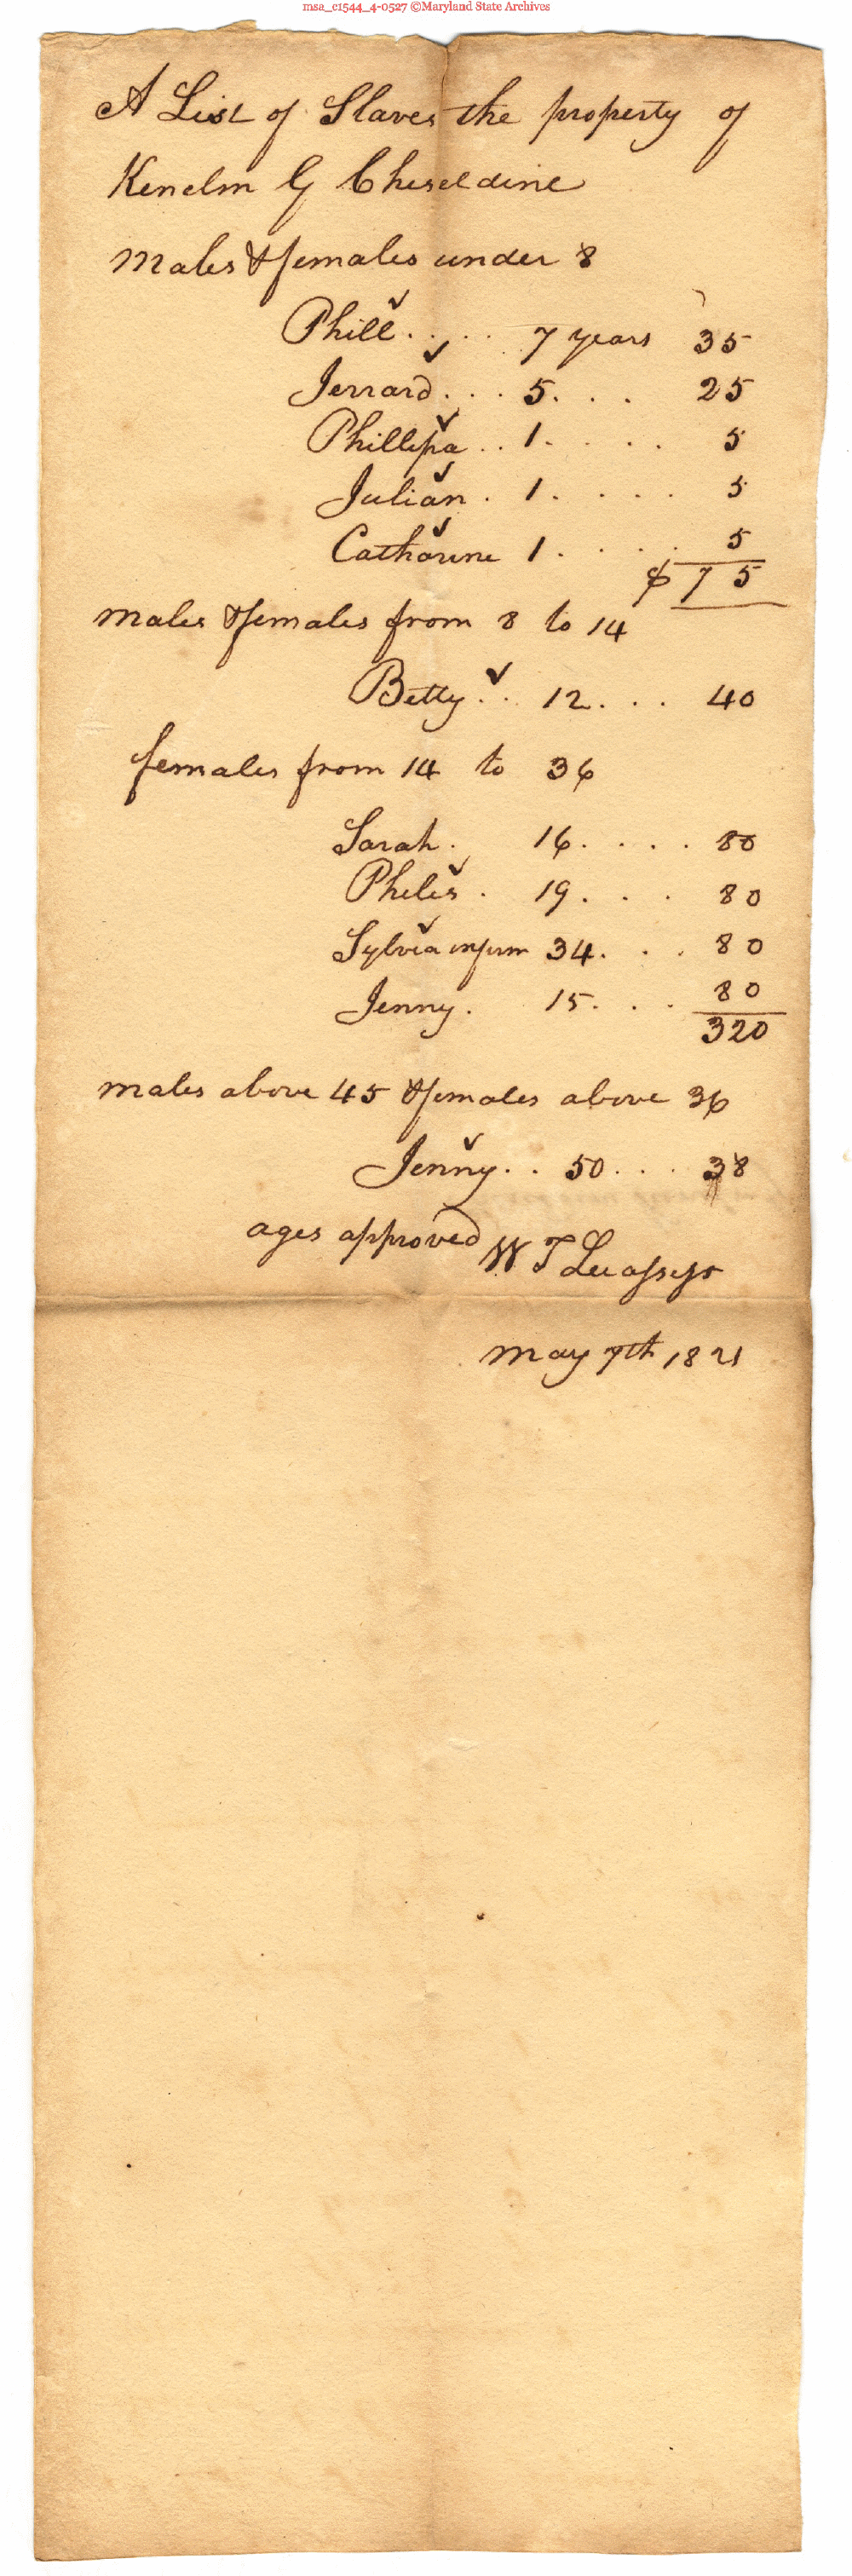 msa_c1544_4-0527 ©Maryland State Archives
A List of Slaves the property of
Kenelm G Cheseldine
Males & females under 8
Phill . . . . 7 years 35
Jerrard . . . 5 . . . 25
Phillipa . . 1 . . . . 5
Julian . 1 . . . . 5
Catharine 1 . . . . 5
$ 75
males & females from 8 to 14
Betty . . 12 . . . 40
females from 14 to 36
Sarah . 16 . . . . 80
Philis . 19 . . . 80
Sylvia infirm 34 . . . 80
Jenny . 15 . . . 80
320
males above 45 & females above 36
Jenny . . 50 . . . 38
ages approved W T Lee assessr
may 7th 1821